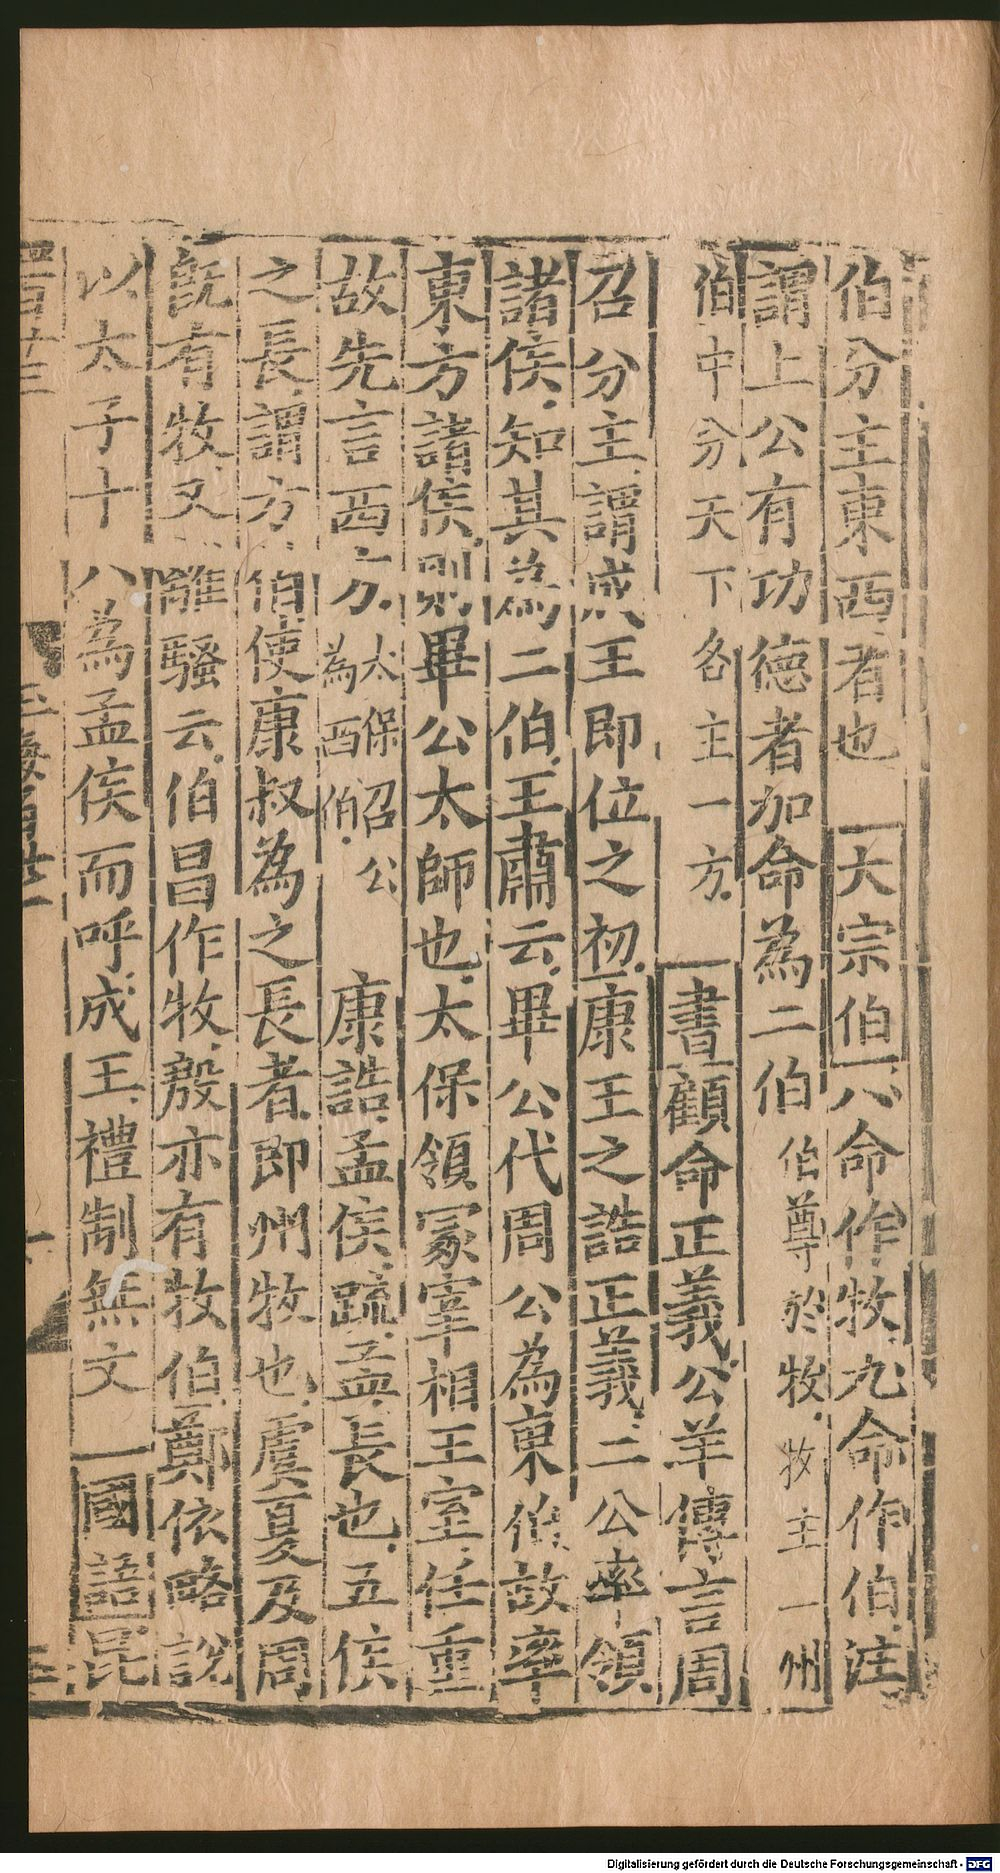 伯分主東西者也　大宗伯八命作牧九命作伯注
謂上公有功德者加命為二伯伯尊於牧牧主一州
伯中分天下各主一方　書顧命正義公羊傳言周
召分主謂成王即位之初康王之誥正義二公率領
諸侯知其為二伯王肅云畢公代周公為東伯故率
東方諸侯則畢公太師也太保領冢宰相王室任重
故先言西方太保召公為西伯　康誥孟侯疏孟長也五侯
之長謂方伯使康叔為之長者即州牧也虞夏及周
既有牧又離騷云伯昌作牧殷亦有牧伯鄭依略說
以太子十八為孟侯而呼成王禮制無文　國語昆
Digitalisierung gefördert durch die Deutsche Forschungsgemeinschaft - DFG